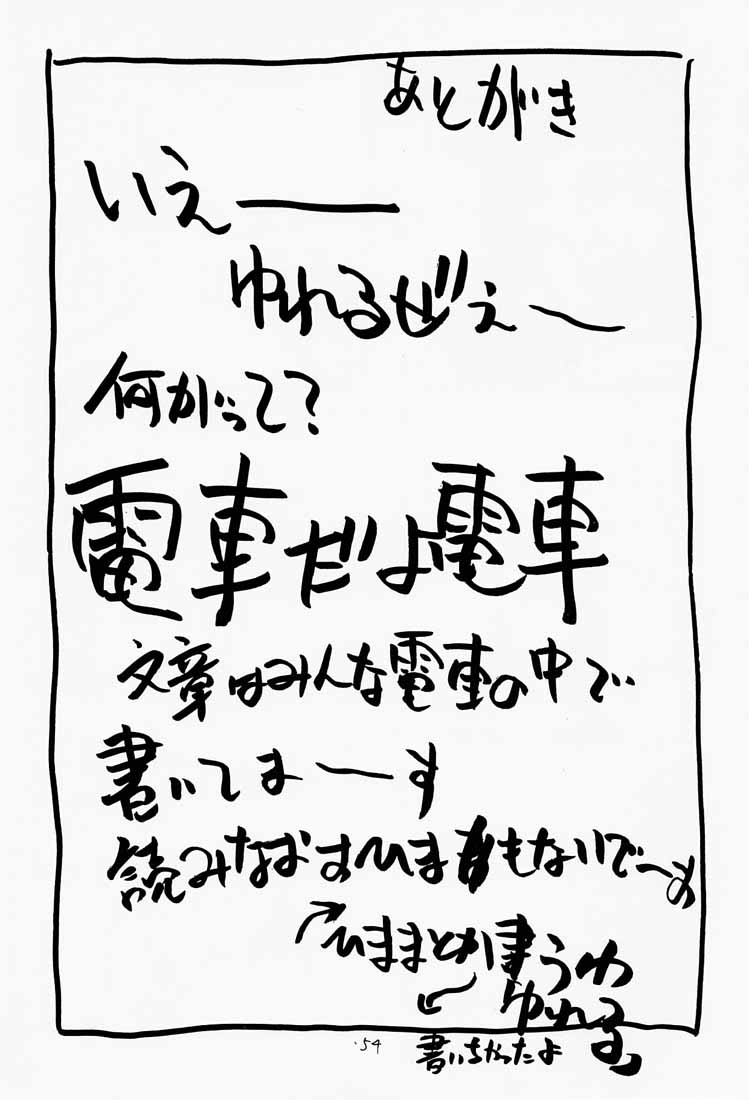 あとがき
いえ──
ゆれるぜぇ〜
何がって?
電車だよ電車
文章はみんな電車の中で
書いてま〜す
読みなおすひまもないで〜す
↗ひままとか書うわ
ゆれる。
↙
書いちゃったよ
54